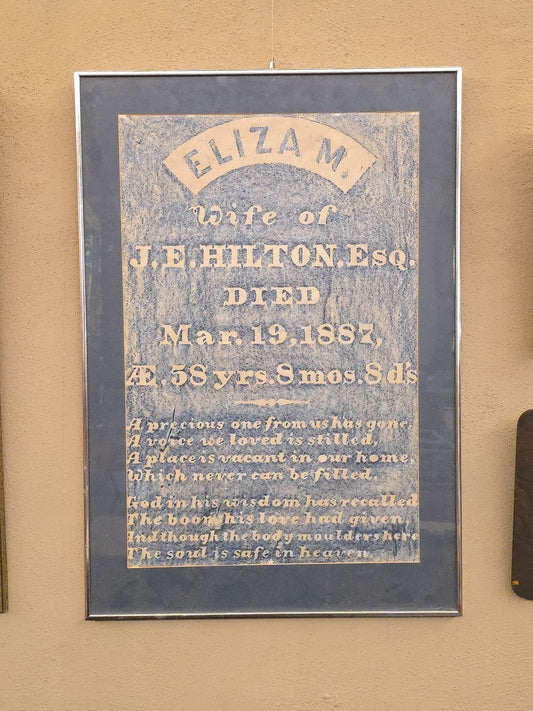 ELIZA M.
Wife of
J.E.HILTON.ESQ.
DIED
Mar.19,1887,
Æ.58 yrs.8 mos.8 d's
A precious one from us has gone,
A voice we loved is stilled,
A place is vacant in our home,
Which never can be filled.
God in his wisdom has recalled
The boon his love had given,
And though the body moulders here
The soul is safe in heaven.